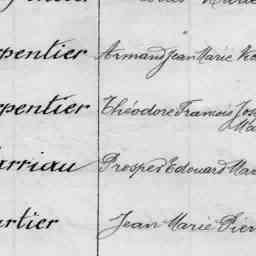 pentier Armand Jean Marie
pentier Théodore Francois
arriau Prosper Edouard Mar
rtier Jean Marie Pier